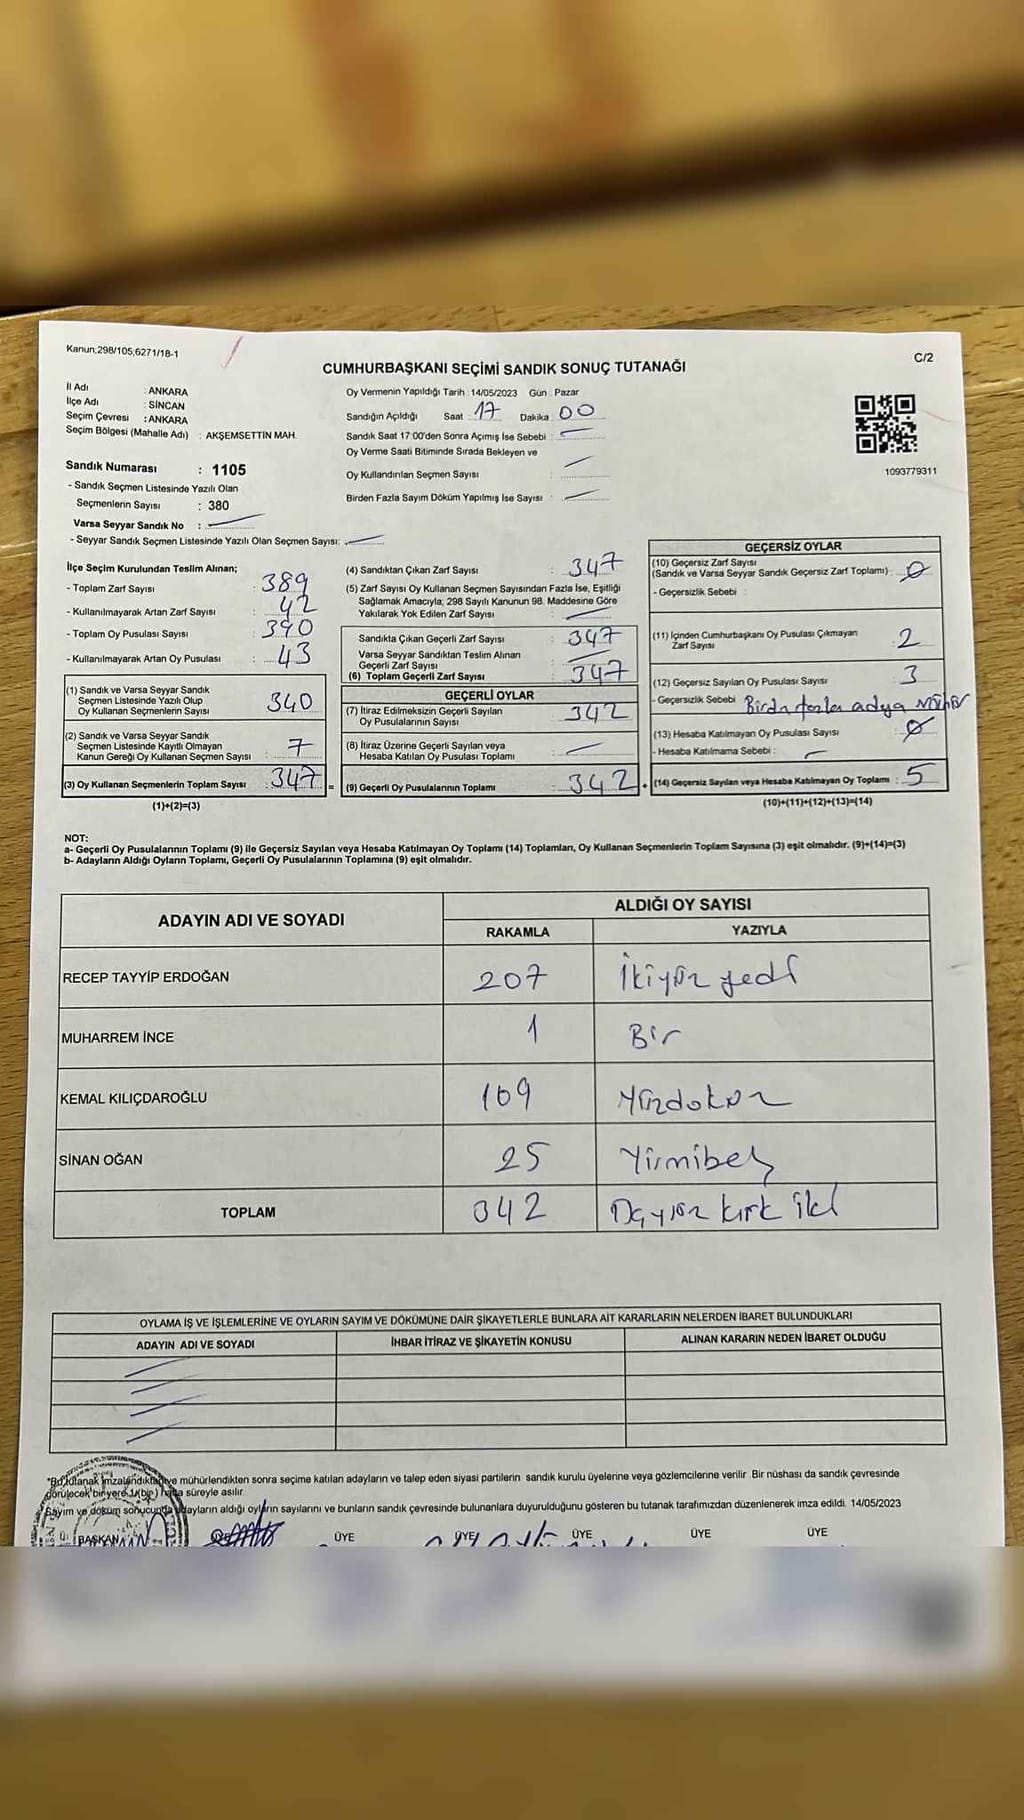 Kanun;298/105,6271/18-1
C/2
CUMHURBAŞKANI SEÇİMİ SANDIK SONUÇ TUTANAĞI
İl Adı : ANKARA
İlçe Adı : SİNCAN
Seçim Çevresi : ANKARA
Seçim Bölgesi (Mahalle Adı) : AKŞEMSETTİN MAH.
Sandık Numarası : 1105
- Sandık Seçmen Listesinde Yazılı Olan
Seçmenlerin Sayısı : 380
Varsa Seyyar Sandık No :
- Seyyar Sandık Seçmen Listesinde Yazılı Olan Seçmen Sayısı:
Oy Vermenin Yapıldığı Tarih : 14/05/2023 Gün : Pazar
Sandığın Açıldığı Saat : 17 Dakika : 00
Sandık Saat 17:00'den Sonra Açımış İse Sebebi :
Oy Verme Saati Bitiminde Sırada Bekleyen ve
Oy Kullandırılan Seçmen Sayısı :
Birden Fazla Sayım Döküm Yapılmış İse Sayısı :
1093779311
İlçe Seçim Kurulundan Teslim Alınan;
- Toplam Zarf Sayısı : 389
- Kullanılmayarak Artan Zarf Sayısı : 42
- Toplam Oy Pusulası Sayısı : 390
- Kullanılmayarak Artan Oy Pusulası : 43
(1) Sandık ve Varsa Seyyar Sandık
Seçmen Listesinde Yazılı Olup
Oy Kullanan Seçmenlerin Sayısı : 340
(2) Sandık ve Varsa Seyyar Sandık
Seçmen Listesinde Kayıtlı Olmayan
Kanun Gereği Oy Kullanan Seçmen Sayısı : 7
(3) Oy Kullanan Seçmenlerin Toplam Sayısı : 347
(1)+(2)=(3)
(4) Sandıktan Çıkan Zarf Sayısı : 347
(5) Zarf Sayısı Oy Kullanan Seçmen Sayısından Fazla İse, Eşitliği
Sağlamak Amacıyla, 298 Sayılı Kanunun 98. Maddesine Göre
Yakılarak Yok Edilen Zarf Sayısı :
Sandıkta Çıkan Geçerli Zarf Sayısı : 347
Varsa Seyyar Sandıktan Teslim Alınan
Geçerli Zarf Sayısı :
(6) Toplam Geçerli Zarf Sayısı : 347
GEÇERLİ OYLAR
(7) İtiraz Edilmeksizin Geçerli Sayılan
Oy Pusulalarının Sayısı : 342
(8) İtiraz Üzerine Geçerli Sayılan veya
Hesaba Katılan Oy Pusulası Toplamı :
= (9) Geçerli Oy Pusulalarının Toplamı : 342
GEÇERSİZ OYLAR
(10) Geçersiz Zarf Sayısı
(Sandık ve Varsa Seyyar Sandık Geçersiz Zarf Toplamı) : 0
- Geçersizlik Sebebi :
(11) İçinden Cumhurbaşkanı Oy Pusulası Çıkmayan
Zarf Sayısı : 2
(12) Geçersiz Sayılan Oy Pusulası Sayısı : 3
- Geçersizlik Sebebi : Birden fazla adaya mühür
(13) Hesaba Katılmayan Oy Pusulası Sayısı : 0
- Hesaba Katılmama Sebebi :
+ (14) Geçersiz Sayılan veya Hesaba Katılmayan Oy Toplamı : 5
(10)+(11)+(12)+(13)=(14)
NOT:
a- Geçerli Oy Pusulalarının Toplamı (9) ile Geçersiz Sayılan veya Hesaba Katılmayan Oy Toplamı (14) Toplamları, Oy Kullanan Seçmenlerin Toplam Sayısına (3) eşit olmalıdır. (9)+(14)=(3)
b- Adayların Aldığı Oyların Toplamı, Geçerli Oy Pusulalarının Toplamına (9) eşit olmalıdır.
ADAYIN ADI VE SOYADI
ALDIĞI OY SAYISI
RAKAMLA YAZIYLA
RECEP TAYYİP ERDOĞAN 207 İkiyüz yedi
MUHARREM İNCE 1 Bir
KEMAL KILIÇDAROĞLU 109 Yüzdokuz
SİNAN OĞAN 25 Yirmibeş
TOPLAM 342 Üçyüz kırk iki
OYLAMA İŞ VE İŞLEMLERİNE VE OYLARIN SAYIM VE DÖKÜMÜNE DAİR ŞİKAYETLERLE BUNLARA AİT KARARLARIN NELERDEN İBARET BULUNDUKLARI
ADAYIN ADI VE SOYADI İHBAR İTİRAZ VE ŞİKAYETİN KONUSU ALINAN KARARIN NEDEN İBARET OLDUĞU
"Bu tutanak imzalandıktan ve mühürlendikten sonra seçime katılan adayların ve talep eden siyasi partilerin sandık kurulu üyelerine veya gözlemcilerine verilir. Bir nüshası da sandık çevresinde
görülecek bir yere 1(bir) hafta süreyle asılır.
Sayım ve döküm sonucunda adayların aldığı oyların sayılarını ve bunların sandık çevresinde bulunanlara duyurulduğunu gösteren bu tutanak tarafımızdan düzenlenerek imza edildi. 14/05/2023
BAŞKAN ÜYE ÜYE ÜYE ÜYE ÜYE